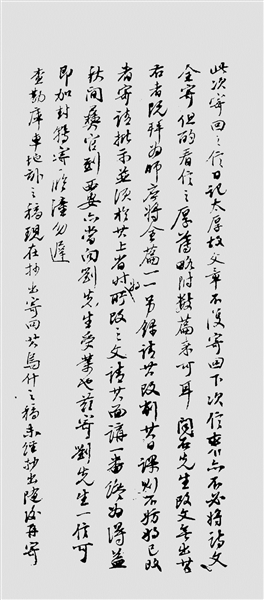 此次寄回之信日記太厚故文章不復寄回下次信來亦不必將詩文
全寄但酌看信之厚薄略附數篇來可耳 閱右先生改文無出其
右者既拜為師應將全篇一一另錄請其改削其日課則不妨將已改
者寄請批示並須於其上省時將所改之文請其面講一番終為得益
秋間奏官到西安亦當向劉先生受業也茲寄劉先生一信可
即加封轉寄臨潼勿遲
查勘庫車地畝之稿現在抄出寄回其烏什之稿未經抄出隨後再寄